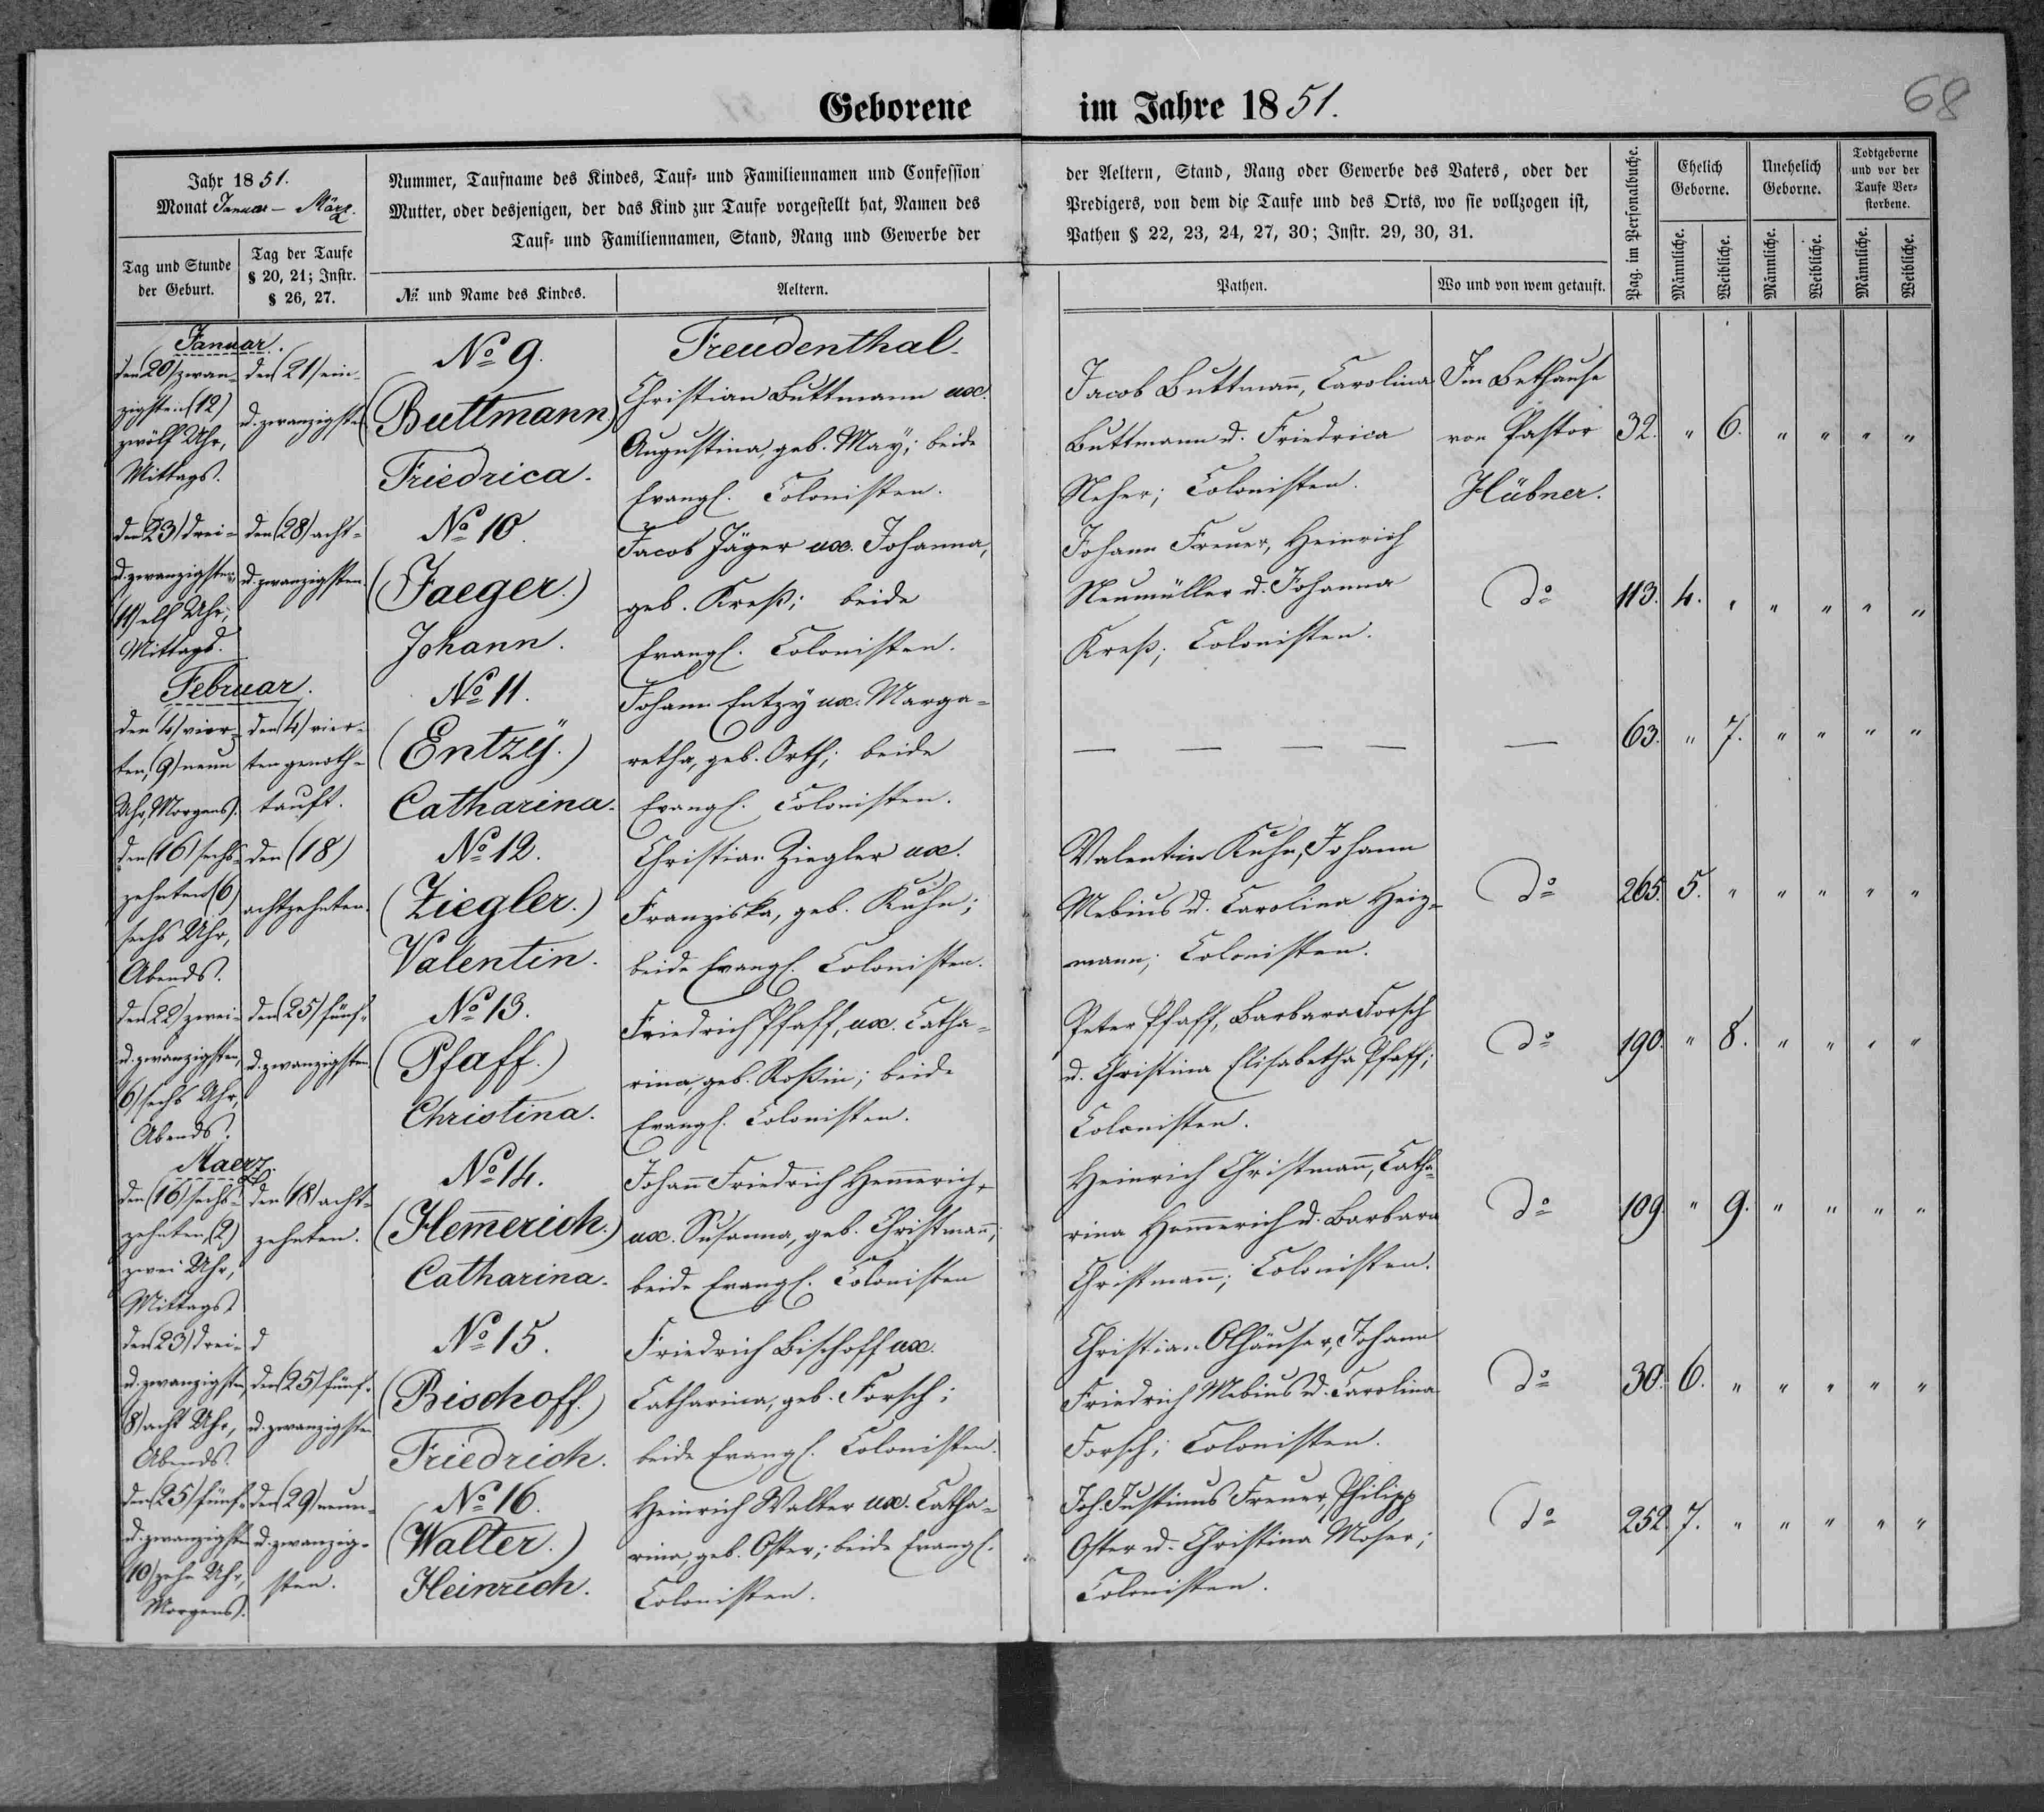 Geborene im Jahre 1851.
68
Jahr 1851.
Monat Januar - März.
Tag und Stunde
der Geburt.
Tag der Taufe
§ 20, 21; Instr.
§ 26, 27.
Nummer, Taufname des Kindes, Tauf- und Familiennamen und Confession
Mutter, oder desjenigen, der das Kind zur Taufe vorgestellt hat, Namen des
Tauf- und Familiennamen, Stand, Rang und Gewerbe der
№ und Name des Kindes.
Aeltern.
der Aeltern, Stand, Rang oder Gewerbe des Vaters, oder der
Predigers, von dem die Taufe und des Orts, wo sie vollzogen ist,
Pathen § 22, 23, 24, 27, 30; Instr. 29, 30, 31.
Pathen.
Wo und von wem getauft.
Pag. im Personalbuche.
Ehelich
Geborne.
Unehelich
Geborne.
Todtgeborne
und vor der
Taufe Ver-
storbene.
Männliche.
Weibliche.
Männliche.
Weibliche.
Männliche.
Weibliche.
Januar.
den (20) zwan-
zigsten (12)
zwölf Uhr,
Mittags.
den (21) ein-
u. zwanzigsten
No 9.
(Buttmann)
Friedrica.
Freudenthal.
Christian Buttmann ux.
Augustina, geb. May; beide
Evangl. Colonisten.
Jacob Buttmann, Carolina
Buttmann u. Friedrica
Neher; Colonisten.
Im Bethause
von Pastor
Hübner.
32. " 6. " " " "
den (23) drei-
u. zwanzigsten,
(11) elf Uhr,
Mittags.
den (28) acht-
u. zwanzigsten.
No 10.
(Jaeger.)
Johann.
Jacob Jäger ux. Johanna,
geb. Kreß; beide
Evangl. Colonisten.
Johann Freuer, Heinrich
Neumüller u. Johanna
Kreß; Colonisten.
do
113. 4. " " " " "
Februar.
den (4) vier-
ten, (9) neun
Uhr, Morgens.
den (4) vier-
ten genoth-
tauft.
No 11.
(Entzÿ.)
Catharina.
Johann Entzy ux. Marga-
retha, geb. Orth; beide
Evangl. Colonisten.
— — — — —
63. " 7. " " " "
den (16) sechs-
zehnten (6)
sechs Uhr,
Abends.
den (18)
achtzehnten.
No 12.
(Ziegler.)
Valentin.
Christian Ziegler ux.
Franziska, geb. Kuhn;
beide Evangl. Colonisten.
Valentin Kuhn, Johann
Mebius u. Carolina Heiz-
mann; Colonisten.
do
265. 5. " " " " "
den (22) zwei-
u. zwanzigsten,
(6) sechs Uhr,
Abends.
den (25) fünf-
u. zwanzigsten.
No 13.
(Pfaff.)
Christina.
Friedrich Pfaff, ux. Catha-
rina, geb. Roßin; beide
Evangl. Colonisten.
Peter Pfaff, Barbara Forsch
u. Christina Elisabetha Pfaff;
Colonisten.
do
190. " 8. " " " "
Maerz.
den (16) sechs-
zehnten, (2)
zwei Uhr,
Mittags.
den (18) acht-
zehnten.
No 14.
(Hem̄erich.)
Catharina.
Johann Friedrich Hem̄erich,
ux. Susanna, geb. Christman̄;
beide Evangl. Colonisten
Heinrich Christman̄, Catha-
rina Hem̄erich u. Barbara
Christman̄; Colonisten.
do
109. " 9. " " " "
den (23) drei-
u. zwanzigsten,
(8) acht Uhr,
Abends.
d
den (25) fünf-
u. zwanzigsten
No 15.
(Bischoff.)
Friedrich.
Friedrich Bischoff ux.
Catharina, geb. Forsch;
beide Evangl. Colonisten.
Christian Olhäuser, Johann
Friedrich Mebius u. Carolina
Forsch; Colonisten.
do
30. 6. " " " " "
den (25) fünf-
u. zwanzigsten
(10) zehn Uhr,
Morgens.
den (29) neun-
u. zwanzig-
sten.
No 16.
(Walter.)
Heinrich.
Heinrich Walter ux. Catha-
rina, geb. Oster; beide Evangl.
Colonisten.
Joh. Justinus Freuer, Philipp
Oster u. Christina Moser;
Colonisten.
do
252. 7. " " " " "